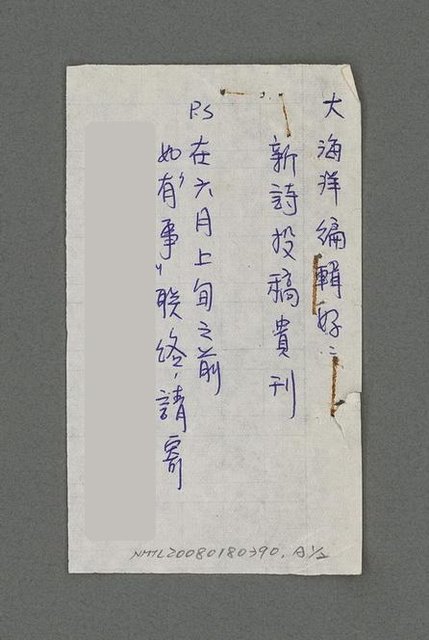 大海洋編輯好：
新詩投稿貴刊
P.S 在六月上旬之前
如有"事"联络，請寄
NMTL20080180390, A1/2